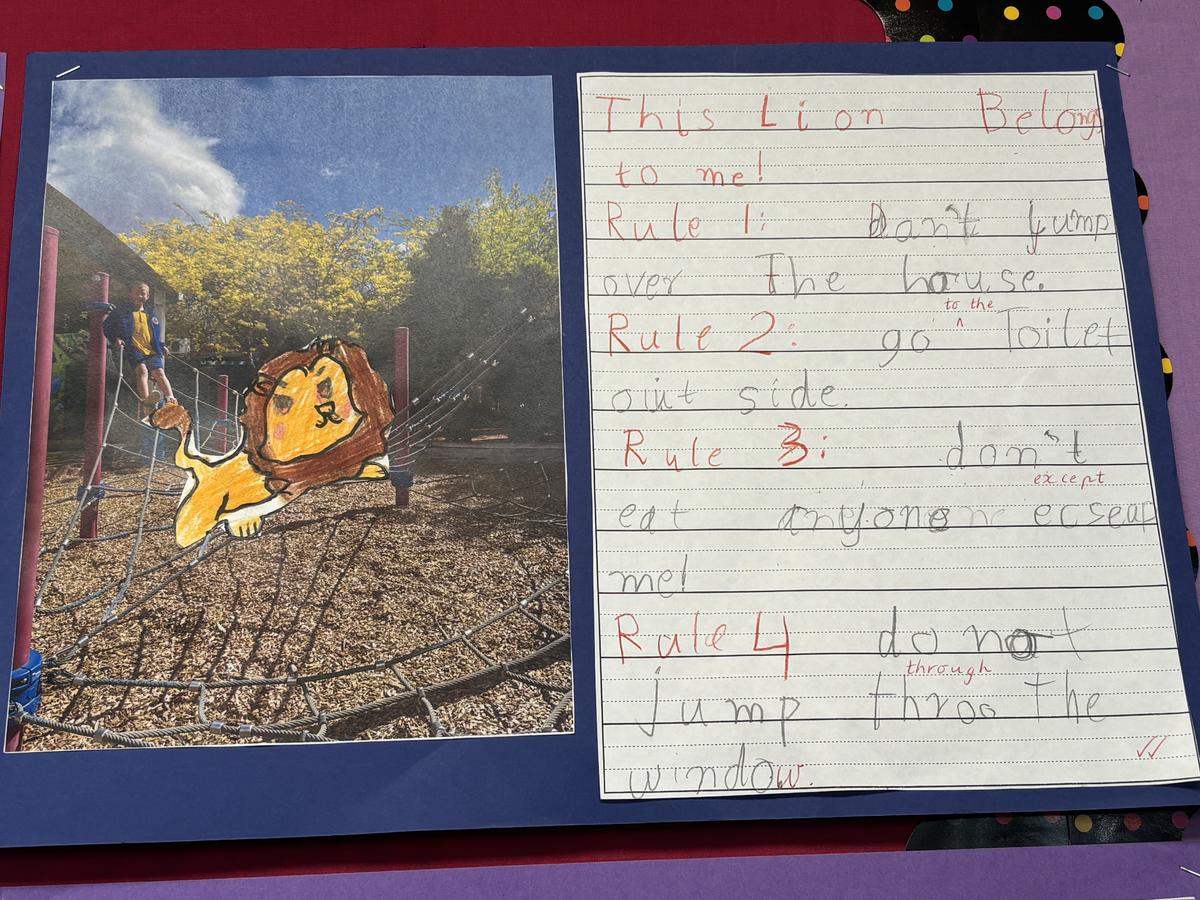 This Lion Belongs
to me!
Rule 1: Don't jump
over The house.
to the
Rule 2: go ^ Toilet
oiut side.
Rule 3: don't
except
eat anyone ecseup
me!
Rule 4 do not
through
jump throo The
window.